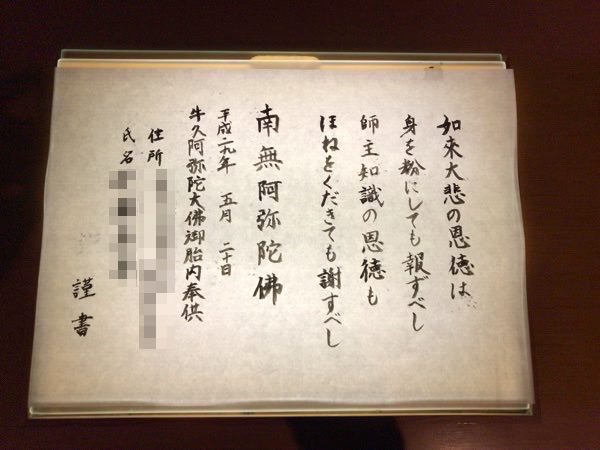 如来大悲の恩徳は
身を粉にしても報ずべし
師主知識の恩徳も
ほねをくだきても謝すべし
南無阿弥陀佛
平成二九年 五月 二十日
牛久阿弥陀大佛御胎内奉供
住所
氏名
謹書